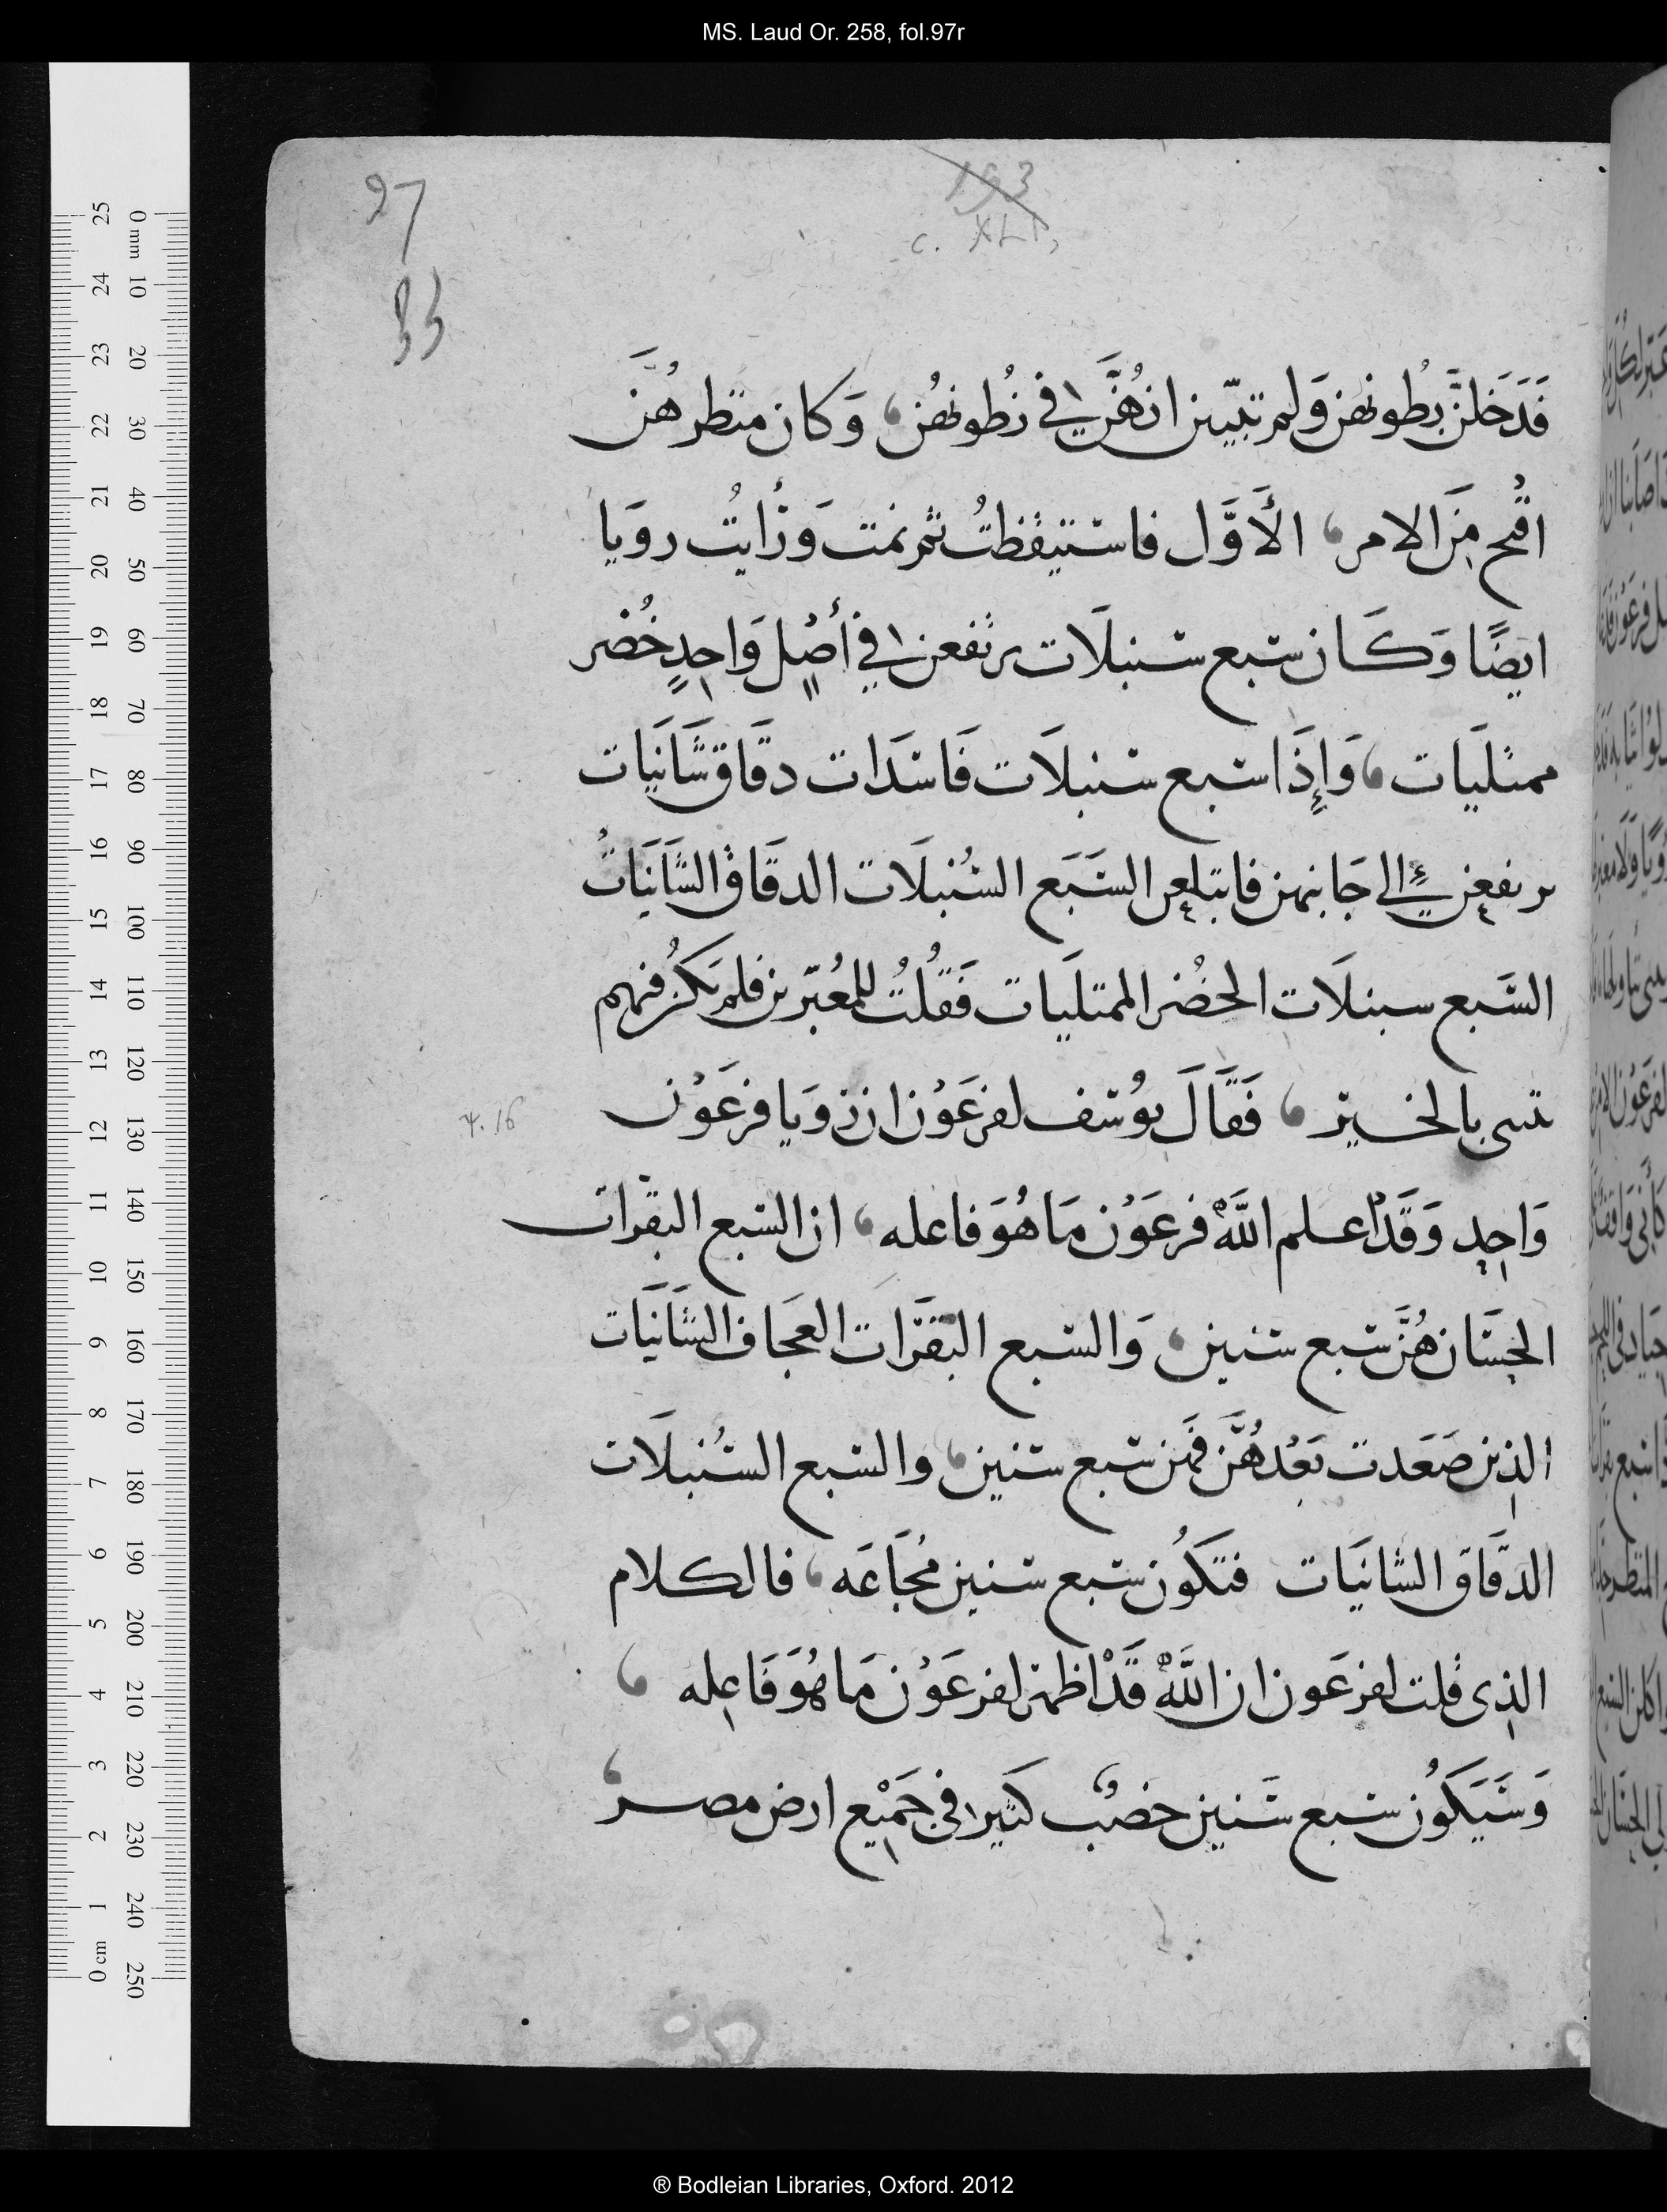 MS. Laud Or. 258, fol.97r
97
193
c. XLI,
33
فَدَخلنَّ بطُونهن وَلم تبيّين انهُنَّ في بُطونهُن وَكان منظرهُنَّ
اقبُح مِنَ الامر الأَوَّل فاستيقظتُ ثمر نمت وَرَأيتُ رويا
ايضًا وَكَان سَبع سنبلَات يرتفعن في أصلٍ وَاحِدٍ خُضر
ممتلَيات وَإِذَا سبع سُنبلَات فَاسدَات دقَاق شَانيَات
يرتفعن إلى جَانبهن فابتلعن السَبَع السُنبلَات الدقَاق الشَانيَاتُ
السَّبع سنبلَات الخضُر الممتليَات فَقُلتُ للمعُبّرين فلم يكُن فيهم
تنبى بالخبر فَقَالَ يوُسف لفرعَوْن ان رويَا فرعَوْن
4. 16
وَاحِد وَقَدْ اعلم اللَّهُ فرعَوْن مَا هُوَ فاعله ان السبع البقرات
الحِسَان هُنَّ سَبع سنين وَالسبع البَقَرَات العجَاف الشَانيَات
الذِين صَعَدت بَعْدهُنَّ فهن سَبع سنين والسبع السُنبلَات
الدقَاق الشانيَات فتكوُن سَبع سنين مُجَاعَه فالكلام
الذِى قلت لفرعَون ان اللَّهُ قَدْ اظهر لفرعَوْن مَا هُوَ فَاعِله
وَسَيَكوُن سبع سَنين خصبٌ كثيرا في جَمِيْع ارض مصر
0 mm 10 20 30 40 50 60 70 80 90 100 110 120 130 140 150 160 170 180 190 200 210 220 230 240 250
25 24 23 22 21 20 19 18 17 16 15 14 13 12 11 10 9 8 7 6 5 4 3 2 1 0 cm
® Bodleian Libraries, Oxford. 2012